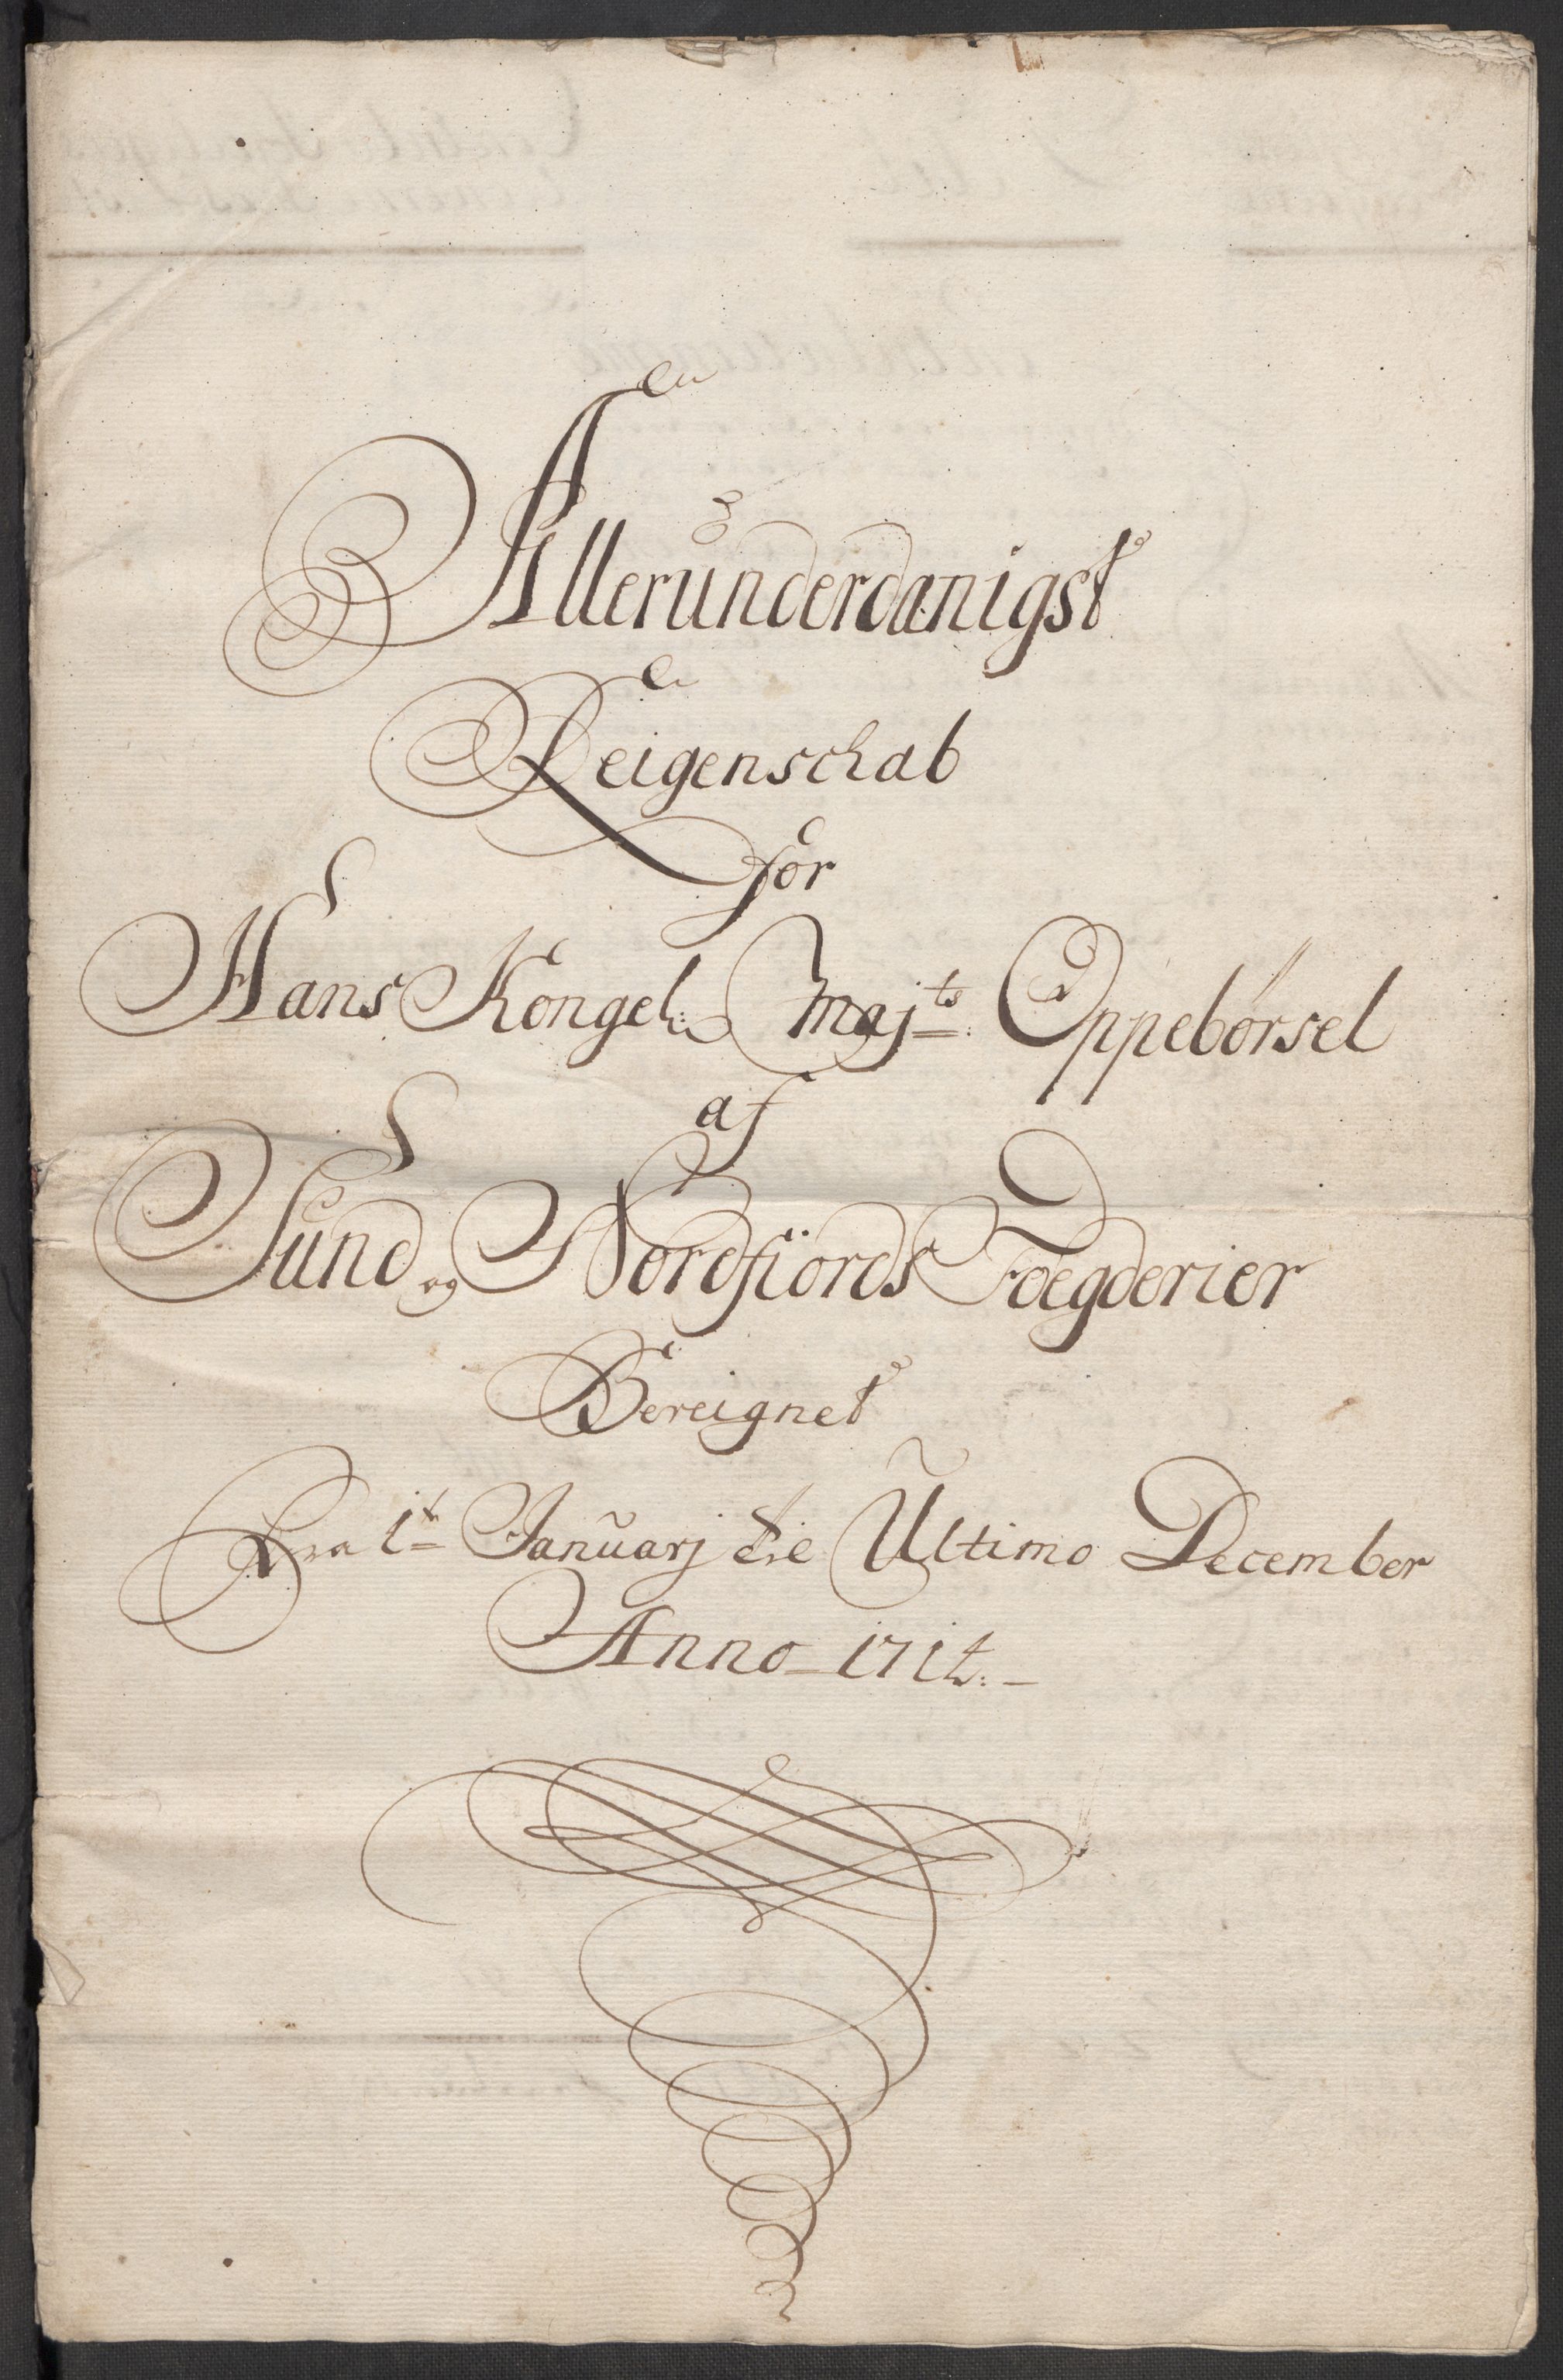 Alleründerdanigst
Reigenschab
for
Hans Kongel: Majts: Oppebørsel
af
Sund og Nordfiords Foegderier
Bereignet
Fra 1t Januarj til Ultimo December
Anno 1714.